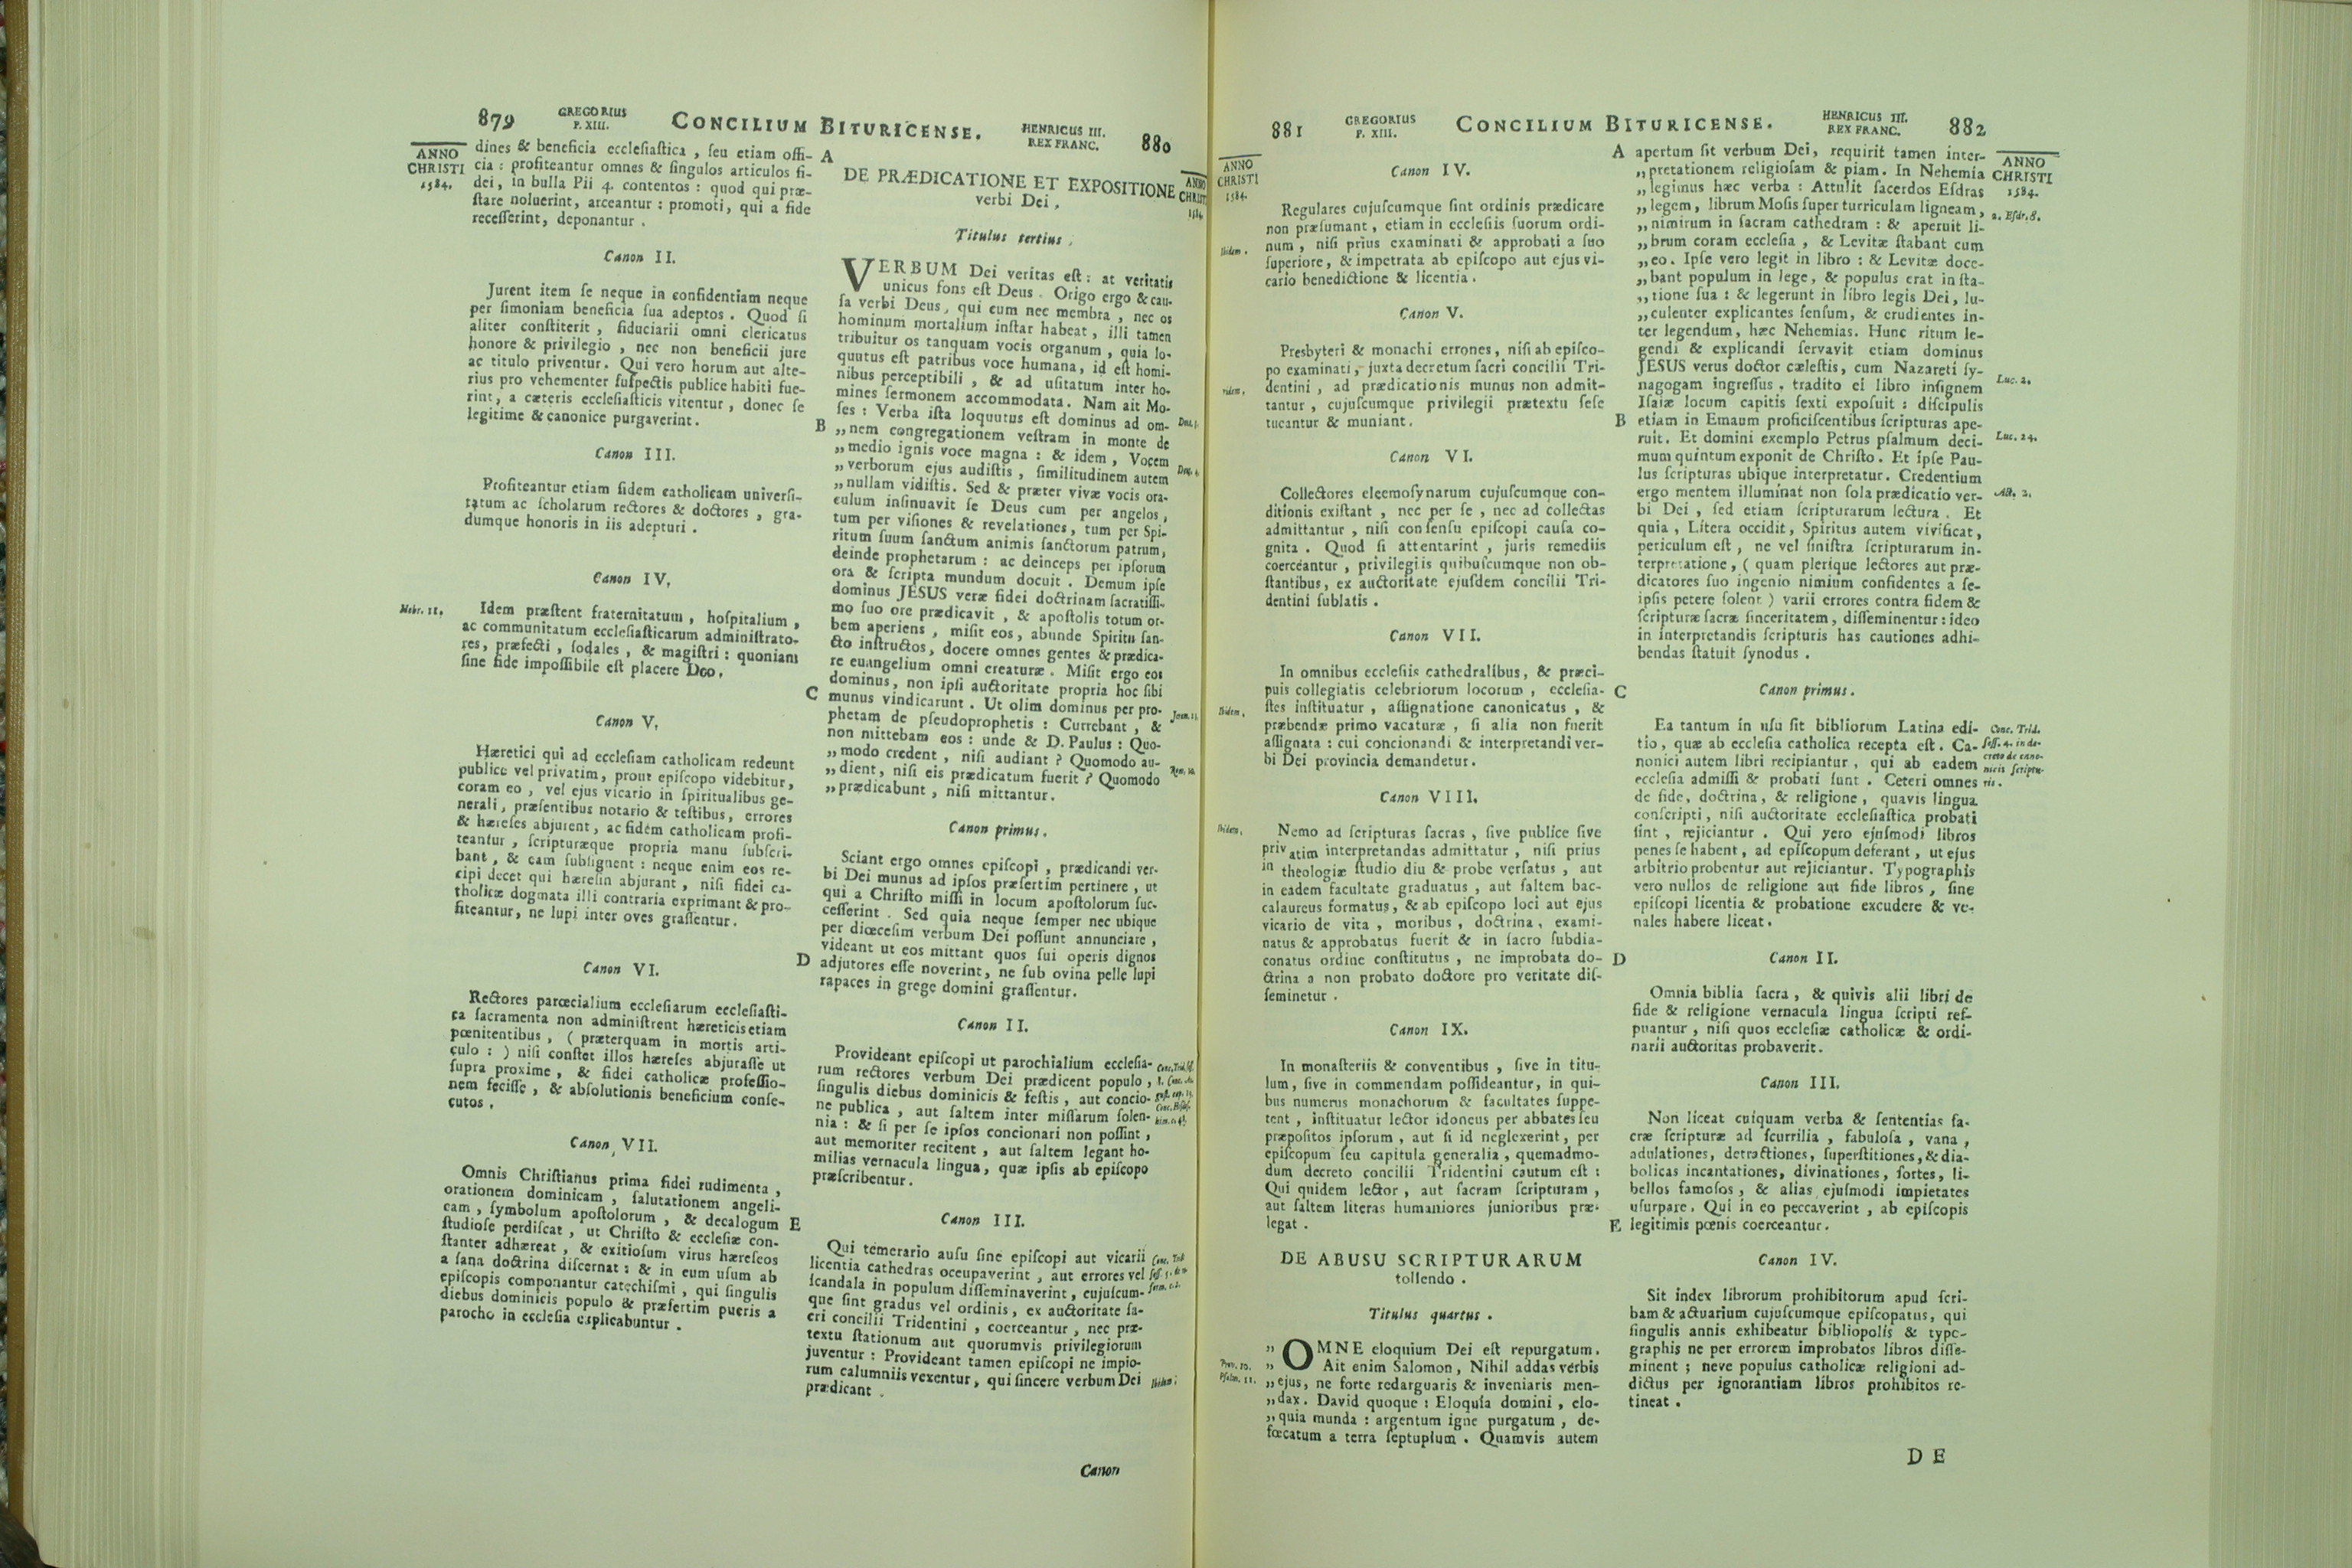 879 GREGORIUS P. XIII. CONCILIUM BITURICENSE. HENRICUS III. REX FRANC. 880
ANNO CHRISTI 1584.
dines & beneficia ecclesiastica, seu etiam offi-
cia: profiteantur omnes & singulos articulos fi-
dei, in bulla Pii 4. contentos: quod qui præ-
stare noluerint, arceantur: promoti, qui a fide
recesserint, deponantur.
Canon II.
Jurent item se neque in confidentiam neque
per simoniam beneficia sua adeptos. Quod si
aliter constiterit, fiduciarii omni clericatus
honore & privilegio, nec non beneficii jure
ac titulo priventur. Qui vero horum aut alte-
rius pro vehementer suspectis publice habiti fue-
rint, a cæteris ecclesiasticis vitentur, donec se
legitime & canonice purgaverint.
Canon III.
Profiteantur etiam fidem catholicam universi-
tatum ac scholarum rectores & doctores, gra-
dumque honoris in iis adepturi.
Canon IV.
Hebr. 11.
Idem præstent fraternitatum, hospitalium,
ac communitatum ecclesiasticarum administrato-
res, præfecti, sodales, & magistri: quoniam
sine fide impossibile est placere Deo.
Canon V.
Hæretici qui ad ecclesiam catholicam redeunt
publice vel privatim, prout episcopo videbitur,
coram eo, vel ejus vicario in spiritualibus ge-
nerali, præsentibus notario & testibus, errores
& hæreses abjurent, ac fidem catholicam profi-
teantur, scripturæque propria manu subscri-
bant, & eam subsignent: neque enim eos re-
cipi decet qui hæresin abjurant, nisi fidei ca-
tholicæ dogmata illi contraria exprimant & pro-
fiteantur, ne lupi inter oves grassentur.
Canon VI.
Rectores parœcialium ecclesiarum ecclesiasti-
ca sacramenta non administrent hæreticis etiam
pœnitentibus, (præterquam in mortis arti-
culo:) nisi constet illos hæreses abjurasse ut
supra proxime, & fidei catholicæ professio-
nem fecisse, & absolutionis beneficium conse-
cutos.
Canon VII.
Omnis Christianus prima fidei rudimenta,
orationem dominicam, salutationem angeli-
cam, symbolum apostolorum, & decalogum
studiose perdiscat, ut Christo & ecclesiæ con-
stanter adhæreat, & exitiosum virus hæreseos
a sana doctrina discernat: & in eum usum ab
episcopis componantur catechismi, qui singulis
diebus dominicis populo & præsertim pueris a
parocho in ecclesia explicabuntur.
A
B
C
D
E
DE PRÆDICATIONE ET EXPOSITIONE
verbi Dei.
ANNO CHRIST. 1584.
Titulus tertius.
VERBUM Dei veritas est: at veritatis
unicus fons est Deus. Origo ergo & cau-
sa verbi Deus, qui cum nec membra, nec os
hominum mortalium instar habeat, illi tamen
tribuitur os tanquam vocis organum, quia lo-
quutus est patribus voce humana, id est homi-
nibus perceptibili, & ad usitatum inter ho-
mines sermonem accommodata. Nam ait Mo-
ses: Verba ista loquutus est dominus ad om-
„nem congregationem vestram in monte de
„medio ignis voce magna: & idem, Vocem
„verborum ejus audistis, similitudinem autem
„nullam vidistis. Sed & præter vivæ vocis ora-
culum insinuavit se Deus cum per angelos,
tum per visiones & revelationes, tum per Spi-
ritum suum sanctum animis sanctorum patrum,
deinde prophetarum: ac deinceps per ipsorum
ora & scripta mundum docuit. Demum ipse
dominus JESUS veræ fidei doctrinam sacratissi-
mo suo ore prædicavit, & apostolis totum or-
bem aperiens, misit eos, abunde Spiritu san-
cto instructos, docere omnes gentes & prædica-
re euangelium omni creaturæ. Misit ergo eos
dominus, non ipsi auctoritate propria hoc sibi
munus vindicarunt. Ut olim dominus per pro-
phetam de pseudoprophetis: Currebant, &
non mittebam eos: unde & D. Paulus: Quo-
„modo credent, nisi audiant? Quomodo au-
„dient, nisi eis prædicatum fuerit? Quomodo
„prædicabunt, nisi mittantur.
Canon primus.
Sciant ergo omnes episcopi, prædicandi ver-
bi Dei munus ad ipsos præsertim pertinere, ut
qui a Christo missi in locum apostolorum suc-
cesserint. Sed quia neque semper nec ubique
per diœcesim verbum Dei possunt annunciare,
videant ut eos mittant quos sui operis dignos
adjutores esse noverint, ne sub ovina pelle lupi
rapaces in grege domini grassentur.
Canon II.
Provideant episcopi ut parochialium ecclesia-
rum rectores verbum Dei prædicent populo,
singulis diebus dominicis & festis, aut concio-
ne publica, aut saltem inter missarum solen-
nia: & si per se ipsos concionari non possint,
aut memoriter recitent, aut saltem legant ho-
milias vernacula lingua, quæ ipsis ab episcopo
præscribentur.
Canon III.
Qui temerario ausu sine episcopi aut vicarii
licentia cathedras occupaverint, aut errores vel
scandala in populum disseminaverint, cujuscum-
que sint gradus vel ordinis, ex auctoritate sa-
cri concilii Tridentini, coerceantur, nec præ-
textu stationum aut quorumvis privilegiorum
juventur: Provideant tamen episcopi ne impio-
rum calumniis vexentur, qui sincere verbum Dei
prædicant.
Ibidem.
Canon
881 GREGORIUS P. XIII. CONCILIUM BITURICENSE. HENRICUS III. REX FRANC. 882
ANNO CHRISTI 1584.
Canon IV.
Ibidem.
Regulares cujuscumque sint ordinis prædicare
non præsumant, etiam in ecclesiis suorum ordi-
num, nisi prius examinati & approbati a suo
superiore, & impetrata ab episcopo aut ejus vi-
cario benedictione & licentia.
Canon V.
Presbyteri & monachi errones, nisi ab episco-
po examinati, juxta decretum sacri concilii Tri-
dentini, ad prædicationis munus non admit-
tantur, cujuscumque privilegii prætextu sese
tueantur & muniant.
Canon VI.
Collectores eleemosynarum cujuscumque con-
ditionis existant, nec per se, nec ad collectas
admittantur, nisi consensu episcopi causa co-
gnita. Quod si attentarint, juris remediis
coerceantur, privilegiis quibuscumque non ob-
stantibus, ex auctoritate ejusdem concilii Tri-
dentini sublatis.
Canon VII.
Ibidem.
In omnibus ecclesiis cathedralibus, & præci-
puis collegiatis celebriorum locorum, ecclesia-
stes instituatur, assignatione canonicatus, &
præbendæ primo vacaturæ, si alia non fuerit
assignata: cui concionandi & interpretandi ver-
bi Dei provincia demandetur.
Canon VIII.
Ibidem.
Nemo ad scripturas sacras, sive publice sive
privatim interpretandas admittatur, nisi prius
in theologiæ studio diu & probe versatus, aut
in eadem facultate graduatus, aut saltem bac-
calaureus formatus, & ab episcopo loci aut ejus
vicario de vita, moribus, doctrina, exami-
natus & approbatus fuerit & in sacro subdia-
conatus ordine constitutus, ne improbata do-
ctrina a non probato doctore pro veritate dis-
seminetur.
Canon IX.
In monasteriis & conventibus, sive in titu-
lum, sive in commendam possideantur, in qui-
bus numerus monachorum & facultates suppe-
tent, instituatur lector idoneus per abbates seu
præpositos ipsorum, aut si id neglexerint, per
episcopum seu capitula generalia, quemadmo-
dum decreto concilii Tridentini cautum est:
Qui quidem lector, aut sacram scripturam,
aut saltem literas humaniores junioribus præ-
legat.
DE ABUSU SCRIPTURARUM
tollendo.
Titulus quartus.
Prov. 30.
Psalm. 11.
„OMNE eloquium Dei est repurgatum.
„Ait enim Salomon, Nihil addas verbis
„ejus, ne forte redarguaris & inveniaris men-
„dax. David quoque: Eloquia domini, elo-
„quia munda: argentum igne purgatum, de-
fœcatum a terra septuplum. Quamvis autem
A
B
C
D
E
apertum sit verbum Dei, requirit tamen inter-
„pretationem religiosam & piam. In Nehemia
„legimus hæc verba: Attulit sacerdos Esdras
„legem, librum Mosis super turriculam ligneam,
„nimirum in sacram cathedram: & aperuit li-
„brum coram ecclesia, & Levitæ stabant cum
„eo. Ipse vero legit in libro: & Levitæ doce-
„bant populum in lege, & populus erat in sta-
„tione sua: & legerunt in libro legis Dei, lu-
„culenter explicantes sensum, & erudientes in-
ter legendum, hæc Nehemias. Hunc ritum le-
gendi & explicandi servavit etiam dominus
JESUS verus doctor cælestis, cum Nazareti sy-
nagogam ingressus, tradito ei libro insignem
Isaiæ locum capitis sexti exposuit: discipulis
etiam in Emaum proficiscentibus scripturas ape-
ruit. Et domini exemplo Petrus psalmum deci-
mum quintum exponit de Christo. Et ipse Pau-
lus scripturas ubique interpretatur. Credentium
ergo mentem illuminat non sola prædicatio ver-
bi Dei, sed etiam scripturarum lectura. Et
quia, Litera occidit, Spiritus autem vivificat,
periculum est, ne vel sinistra scripturarum in-
terpretatione, (quam plerique lectores aut præ-
dicatores suo ingenio nimium confidentes a se-
ipsis petere solent) varii errores contra fidem &
scripturæ sacræ sinceritatem, disseminentur: ideo
in interpretandis scripturis has cautiones adhi-
bendas statuit synodus.
ANNO CHRISTI 1584.
2. Esdr. 8.
Luc. 2.
Luc. 24.
Act. 2.
Canon primus.
Ea tantum in usu sit bibliorum Latina edi-
tio, quæ ab ecclesia catholica recepta est. Ca-
nonici autem libri recipiantur, qui ab eadem
ecclesia admissi & probati sunt. Ceteri omnes
de fide, doctrina, & religione, quavis lingua
conscripti, nisi auctoritate ecclesiastica probati
sint, rejiciantur. Qui vero ejusmodi libros
penes se habent, ad episcopum deferant, ut ejus
arbitrio probentur aut rejiciantur. Typographis
vero nullos de religione aut fide libros, sine
episcopi licentia & probatione excudere & ve-
nales habere liceat.
Conc. Trid.
sess. 4. in de-
creto de cano-
nicis scriptu-
ris.
Canon II.
Omnia biblia sacra, & quivis alii libri de
fide & religione vernacula lingua scripti res-
puantur, nisi quos ecclesiæ catholicæ & ordi-
narii auctoritas probaverit.
Canon III.
Non liceat cuiquam verba & sententias sa-
cræ scripturæ ad scurrilia, fabulosa, vana,
adulationes, detractiones, superstitiones, & dia-
bolicas incantationes, divinationes, sortes, li-
bellos famosos, & alias ejusmodi impietates
usurpare. Qui in eo peccaverint, ab episcopis
legitimis pœnis coerceantur.
Canon IV.
Sit index librorum prohibitorum apud scri-
bam & actuarium cujuscumque episcopatus, qui
singulis annis exhibeatur bibliopolis & typo-
graphis ne per errorem improbatos libros disse-
minent; neve populus catholicæ religioni ad-
dictus per ignorantiam libros prohibitos re-
tineat.
DE